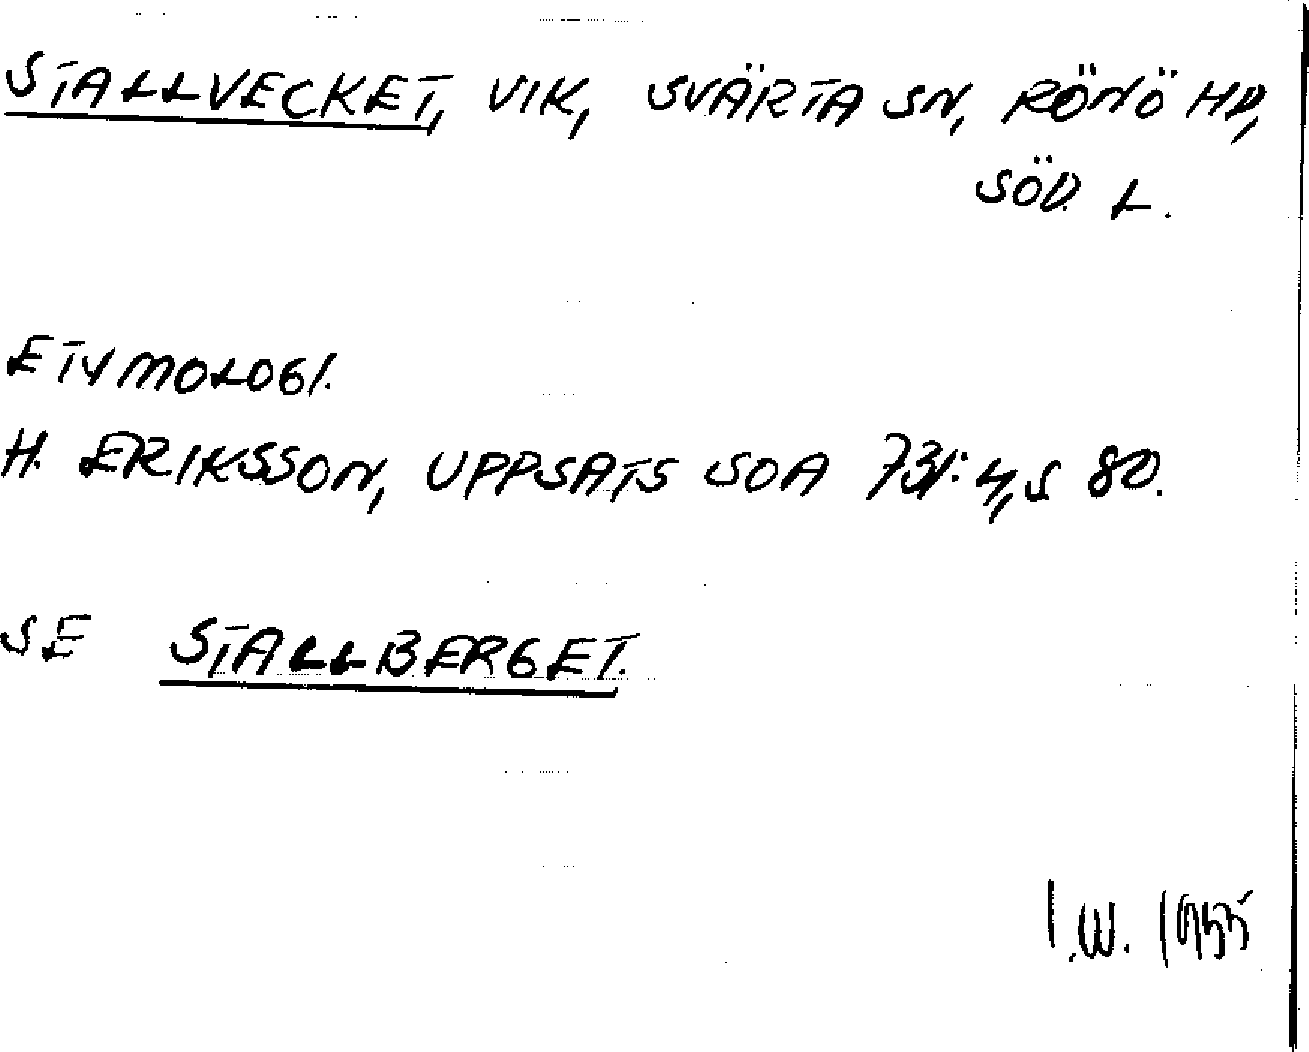 STALLVECKET, VIK, SVÄRTA SN, RÖNÖ HD,
SÖD. L.
ETYMOLOGI.
H. ERIKSSON, UPPSATS SOA 731:4, S 80.
SE STALLBERGET.
I.W. 1955